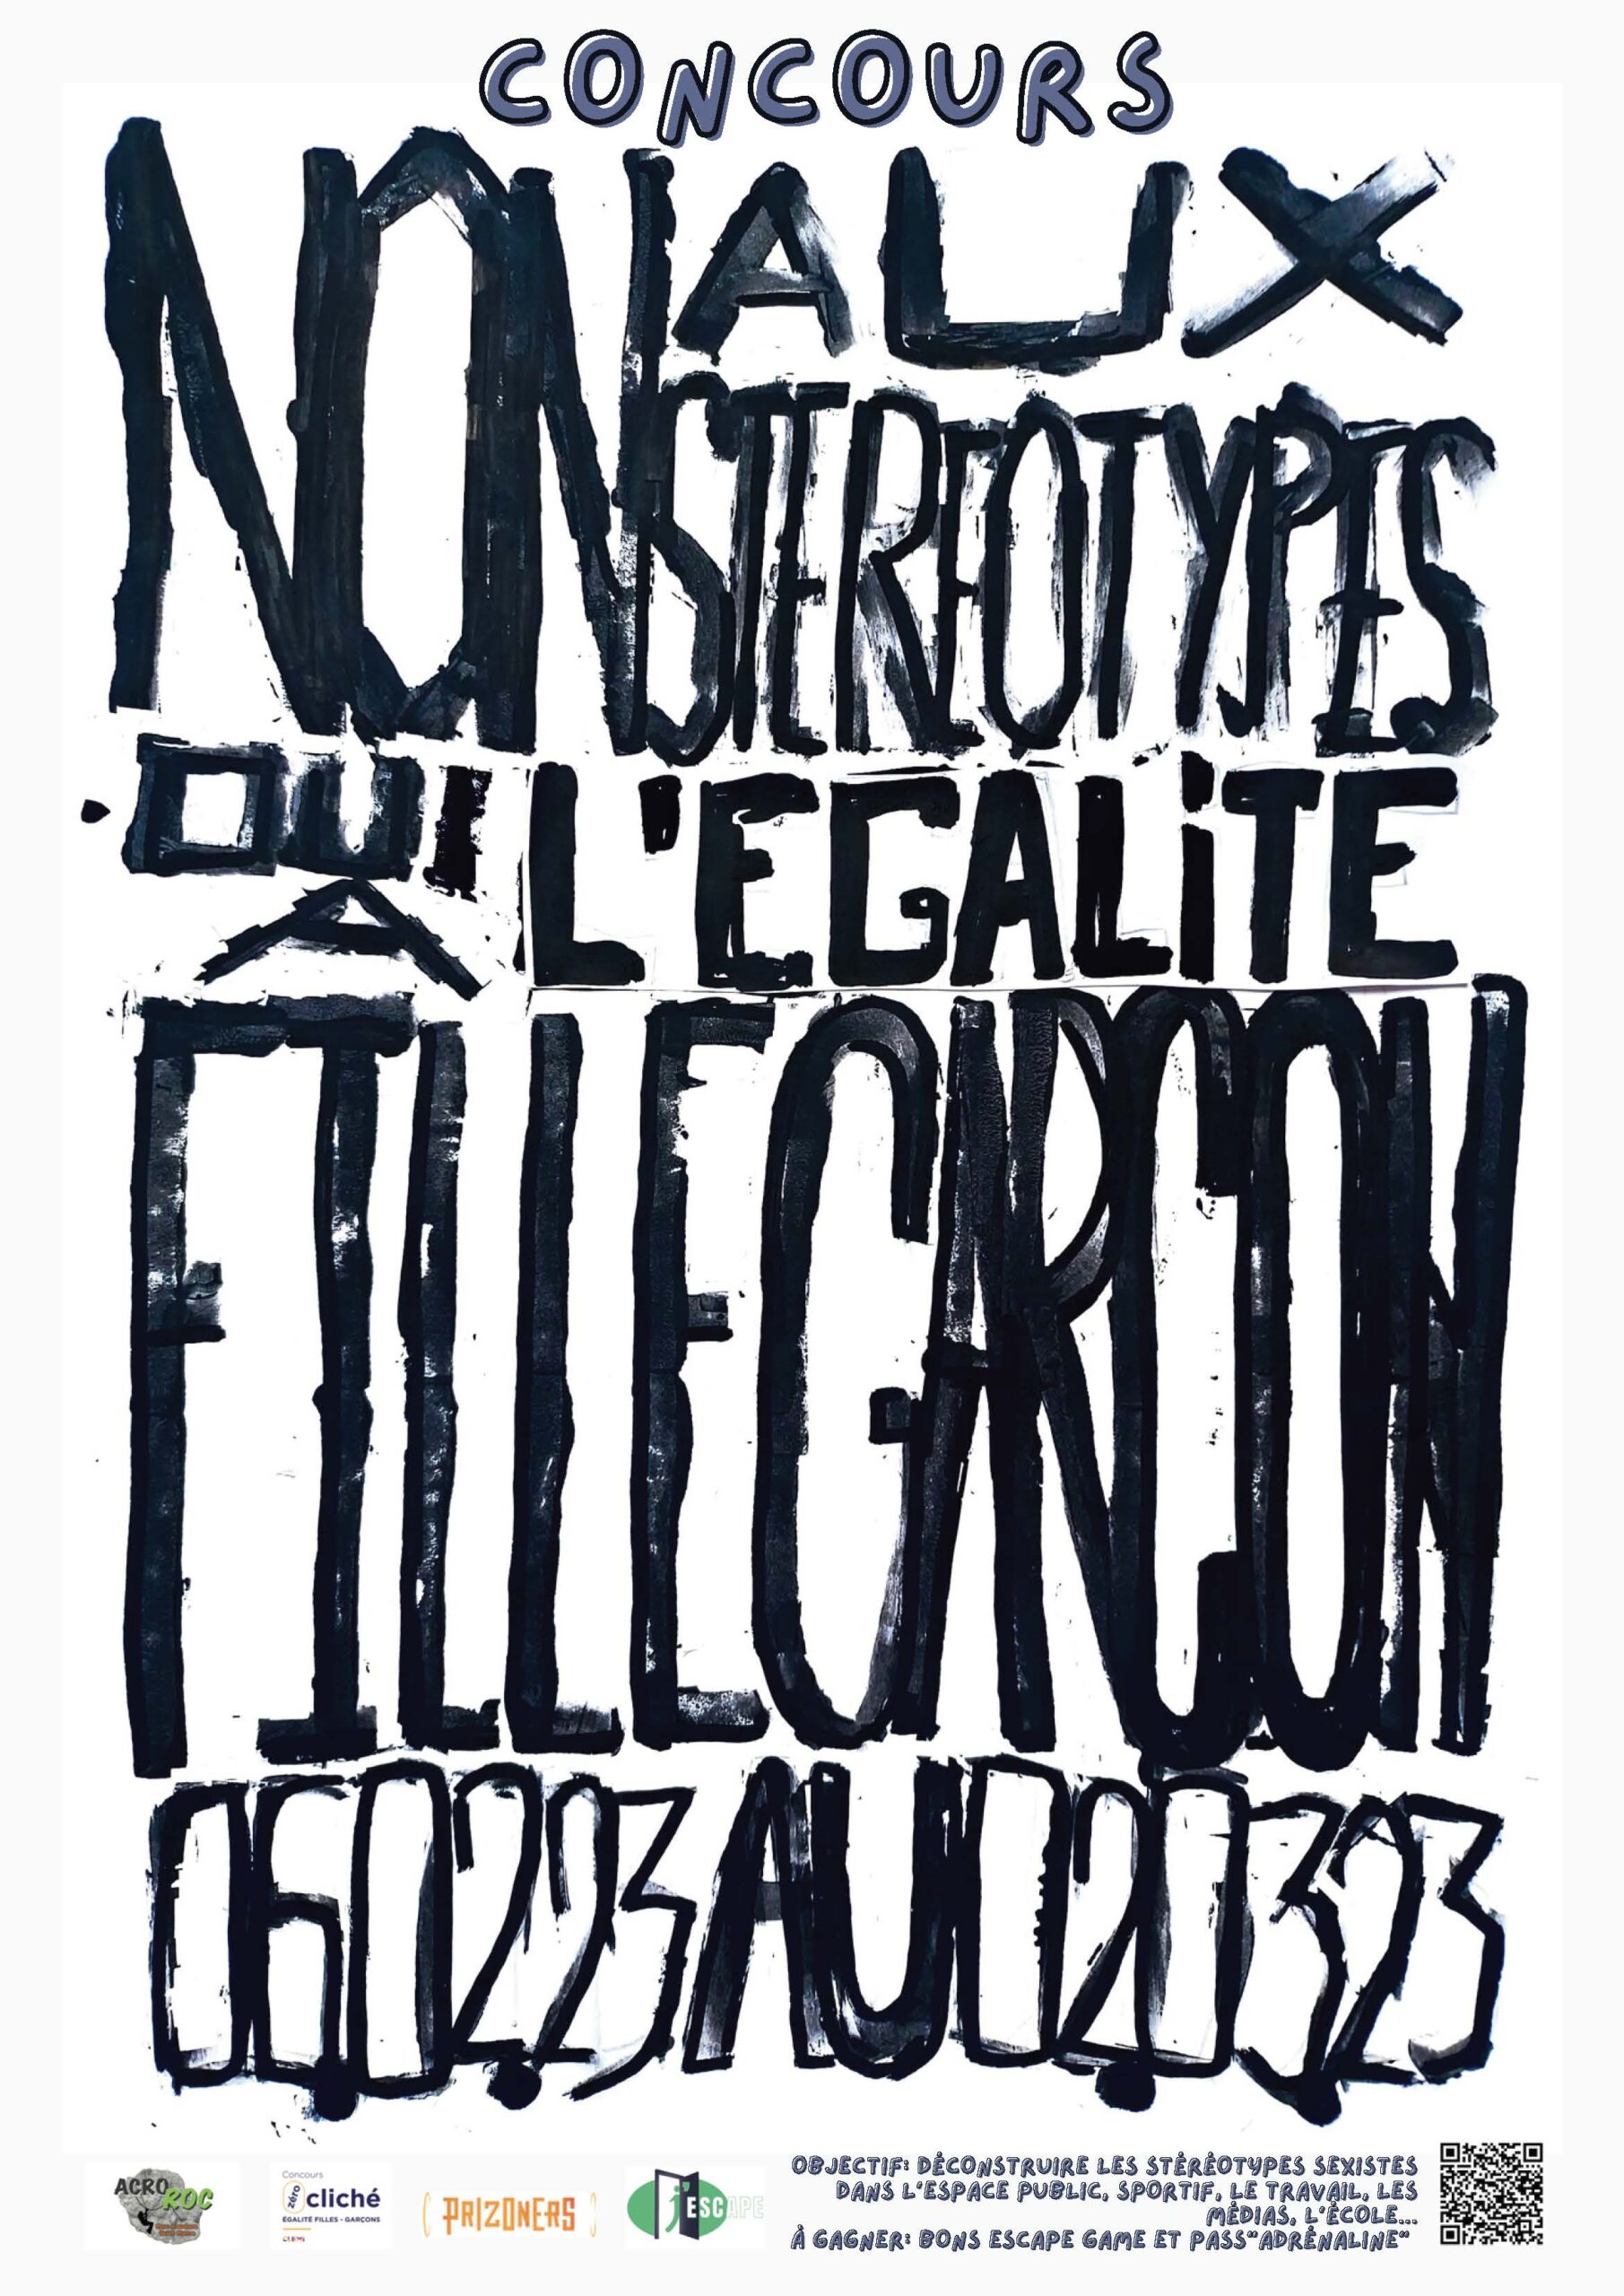 CONCOURS
NON AUX
STEREOTYPES
OUI À L'EGALiTE
FILLE GARCON
06.02.23 AU 02.03.23
OBJECTIF: DÉCONSTRUIRE LES STÉRÉOTYPES SEXISTES
DANS L'ESPACE PUBLIC, SPORTIF, LE TRAVAIL, LES
MÉDIAS, L'ÉCOLE...
À GAGNER: BONS ESCAPE GAME ET PASS"ADRÉNALINE"
ACRO
ROC
Concours
zéro cliché
ÉGALITÉ FILLES - GARÇONS
PRIZONERS
j'ESCAPE